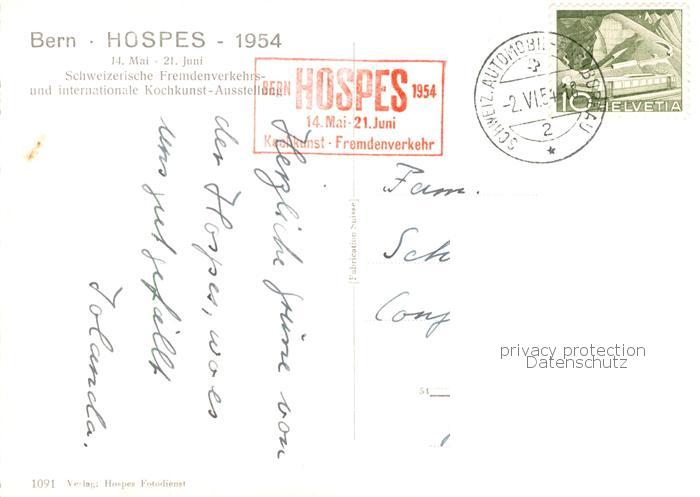 Bern · HOSPES - 1954
14. Mai - 21. Juni
Schweizerische Fremdenverkehrs-
und internationale Kochkunst-Ausstellung
BERN HOSPES 1954
14. Mai - 21. Juni
Kochkunst - Fremdenverkehr
SCHWEIZ. AUTOMOBIL-POSTBUREAU
-2.VI.54-18
2
10 HELVETIA
Herzliche Grüsse von
der Hospes, wo es
uns gut gefällt
Jolanda.
[Fabrication Suisse]
Fam.
Sch
Cong
54
privacy protection
Datenschutz
1091 Verlag: Hospes Fotodienst